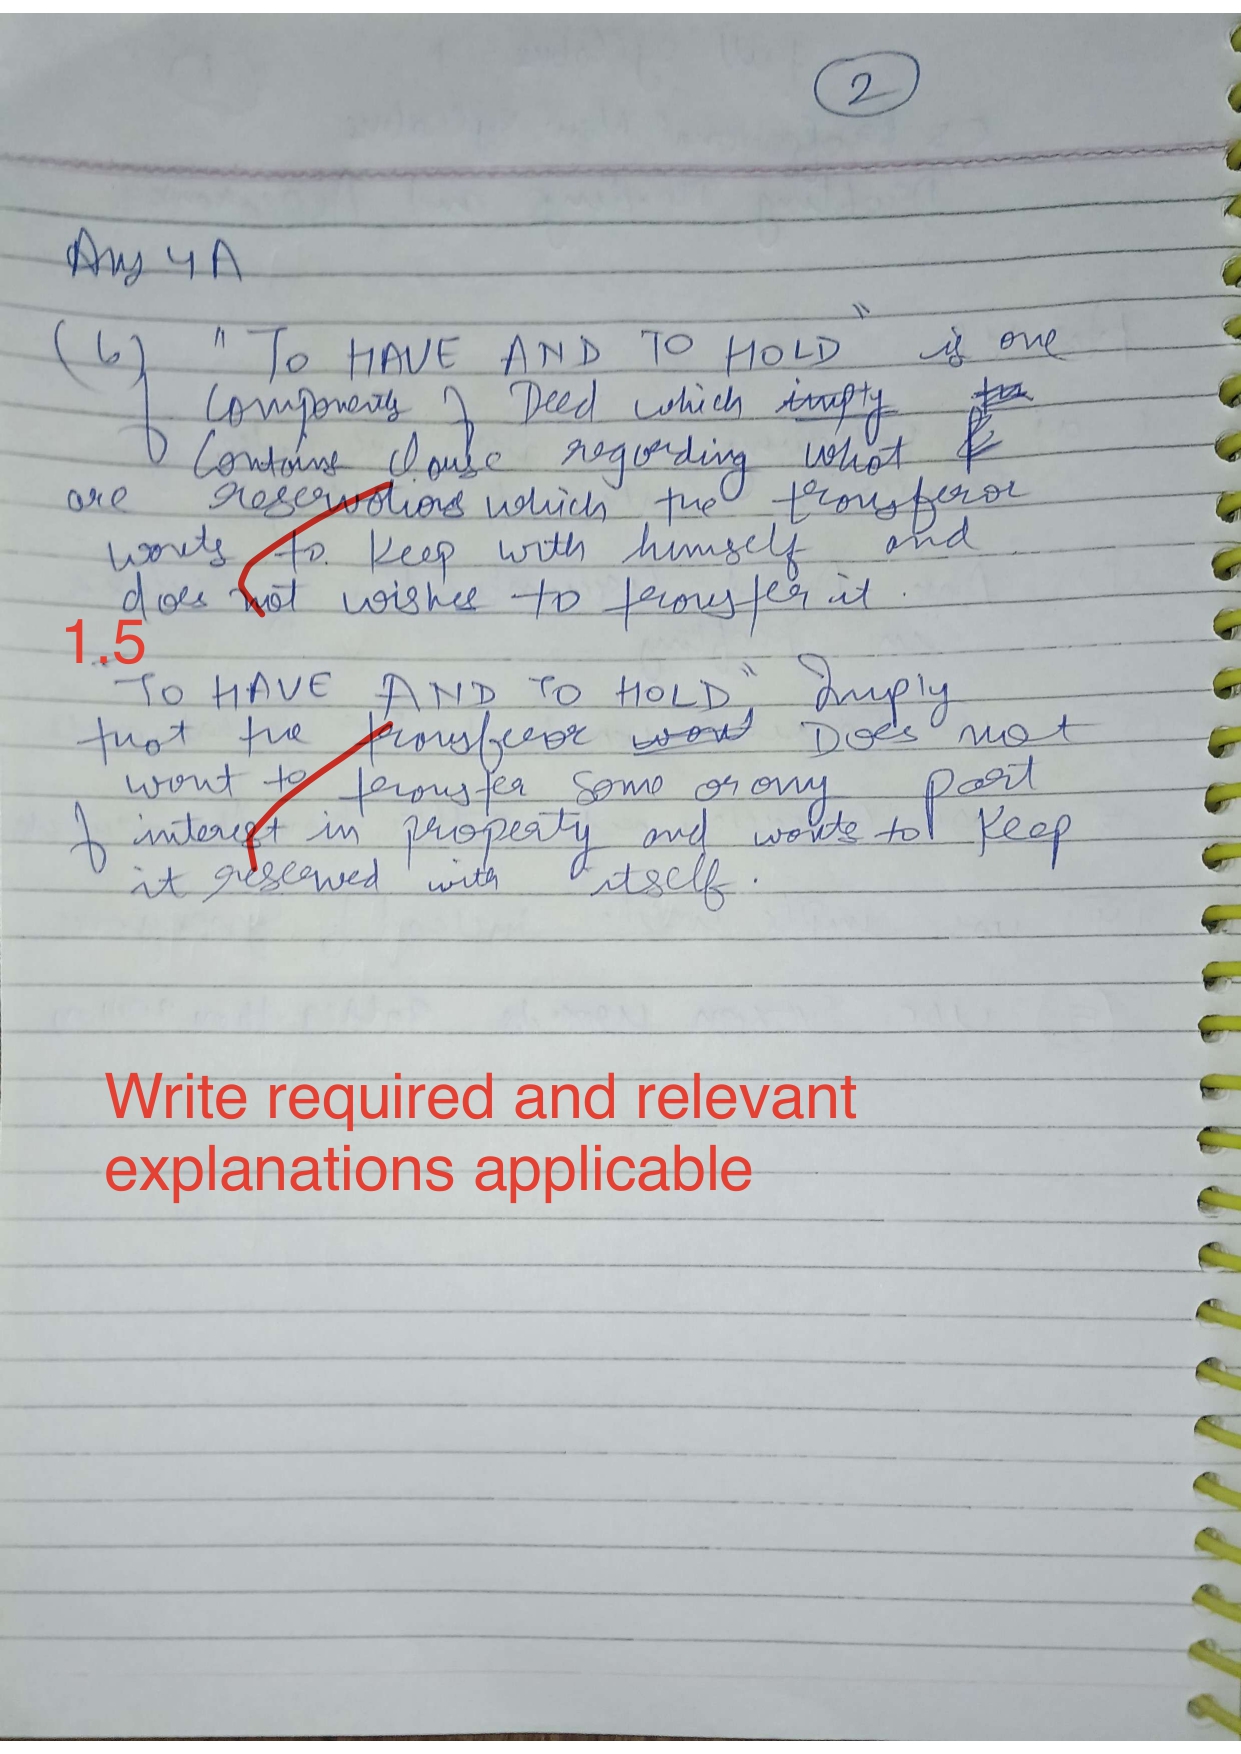 2
Ans 4A
(b) "TO HAVE AND TO HOLD" is one
Components of Deed which imply
Contains Clause regarding what
are reservations which the transferor
wants to keep with himself and
does not wishes to transfer it.
1.5
"TO HAVE AND TO HOLD" Imply
that the transferor want Does not
want to transfer some or any part
of interest in property and wants to keep
it reserved with itself.
Write required and relevant
explanations applicable